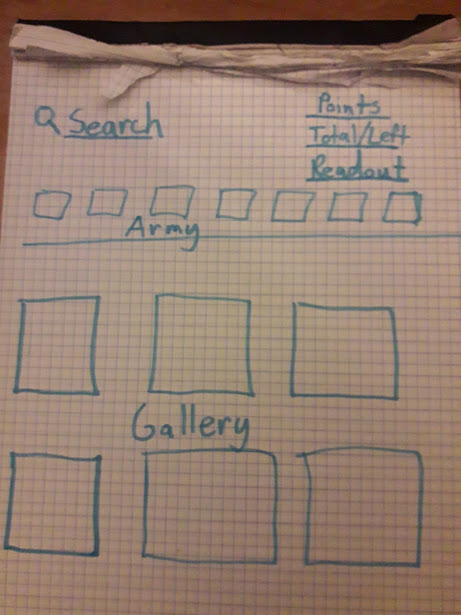 Search
Points
Total/Left
Readout
Army
Gallery